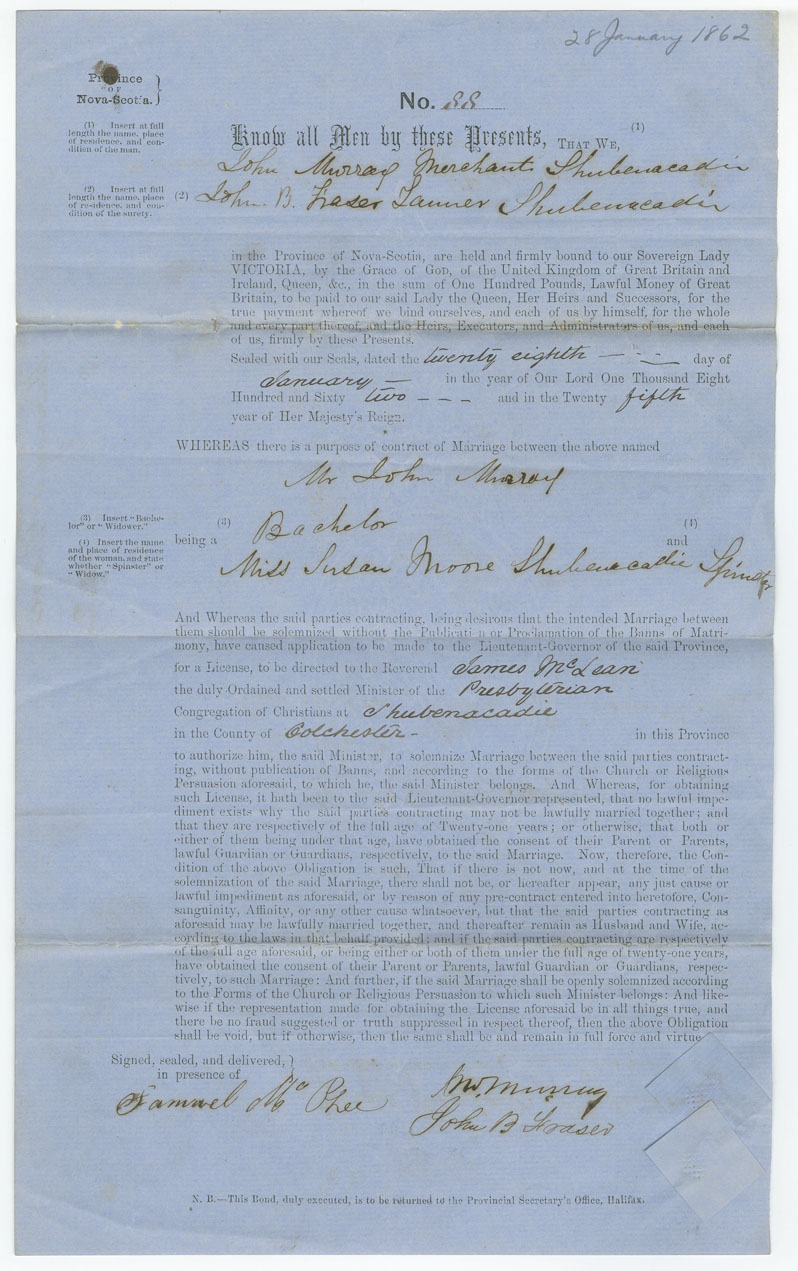 28 January 1862
Province
OF
Nova-Scotia.
No. 88
(1) Insert at full
length the name, place
of residence, and con-
dition of the man.
Know all Men by these Presents, THAT WE, (1)
John Murray Merchant Shubenacadie
(2) Insert at full
length the name, place
of residence, and con-
dition of the surety.
(2) John B. Fraser Tanner Shubenacadie
in the Province of Nova-Scotia, are held and firmly bound to our Sovereign Lady
VICTORIA, by the Grace of GOD, of the United Kingdom of Great Britain and
Ireland, Queen, &c., in the sum of One Hundred Pounds, Lawful Money of Great
Britain, to be paid to our said Lady the Queen, Her Heirs and Successors, for the
true payment whereof we bind ourselves, and each of us by himself, for the whole
and every part thereof, and the Heirs, Executors, and Administrators of us, and each
of us, firmly by these Presents.
Sealed with our Seals, dated the twenty eighth day of
January — in the year of Our Lord One Thousand Eight
Hundred and Sixty two - - - and in the Twenty fifth
year of Her Majesty's Reign.
WHEREAS there is a purpose of contract of Marriage between the above named
Mr John Murray
(3) Insert "Bache-
lor" or "Widower."
(4) Insert the name
and place of residence
of the woman, and state
whether "Spinster" or
"Widow."
being a (3) Bachelor and (4)
Miss Susan Moore Shubenacadie Spinster
And Whereas the said parties contracting, being desirous that the intended Marriage between
them should be solemnized without the Publication or Proclamation of the Banns of Matri-
mony, have caused application to be made to the Lieutenant-Governor of the said Province,
for a License, to be directed to the Reverend James McLean
the duly Ordained and settled Minister of the Presbyterian
Congregation of Christians at Shubenacadie
in the County of Colchester - in this Province
to authorize him, the said Minister, to solemnize Marriage between the said parties contract-
ing, without publication of Banns, and according to the forms of the Church or Religious
Persuasion aforesaid, to which he, the said Minister belongs. And Whereas, for obtaining
such License, it hath been to the said Lieutenant-Governor represented, that no lawful impe-
diment exists why the said parties contracting may not be lawfully married together; and
that they are respectively of the full age of Twenty-one years; or otherwise, that both or
either of them being under that age, have obtained the consent of their Parent or Parents,
lawful Guardian or Guardians, respectively, to the said Marriage. Now, therefore, the Con-
dition of the above Obligation is such, That if there is not now, and at the time of the
solemnization of the said Marriage, there shall not be, or hereafter appear, any just cause or
lawful impediment as aforesaid, or by reason of any pre-contract entered into heretofore, Con-
sanguinity, Affinity, or any other cause whatsoever, but that the said parties contracting as
aforesaid may be lawfully married together, and thereafter remain as Husband and Wife, ac-
cording to the laws in that behalf provided; and if the said parties contracting are respectively
of the full age aforesaid, or being either or both of them under the full age of twenty-one years,
have obtained the consent of their Parent or Parents, lawful Guardian or Guardians, respec-
tively, to such Marriage: And further, if the said Marriage shall be openly solemnized according
to the Forms of the Church or Religious Persuasion to which such Minister belongs: And like-
wise if the representation made for obtaining the License aforesaid be in all things true, and
there be no fraud suggested or truth suppressed in respect thereof, then the above Obligation
shall be void, but if otherwise, then the same shall be and remain in full force and virtue
Signed, sealed, and delivered,
in presence of
Samuel Mc Phee
Jno. Murray
John B Fraser
N. B.—This Bond, duly executed, is to be returned to the Provincial Secretary's Office, Halifax.